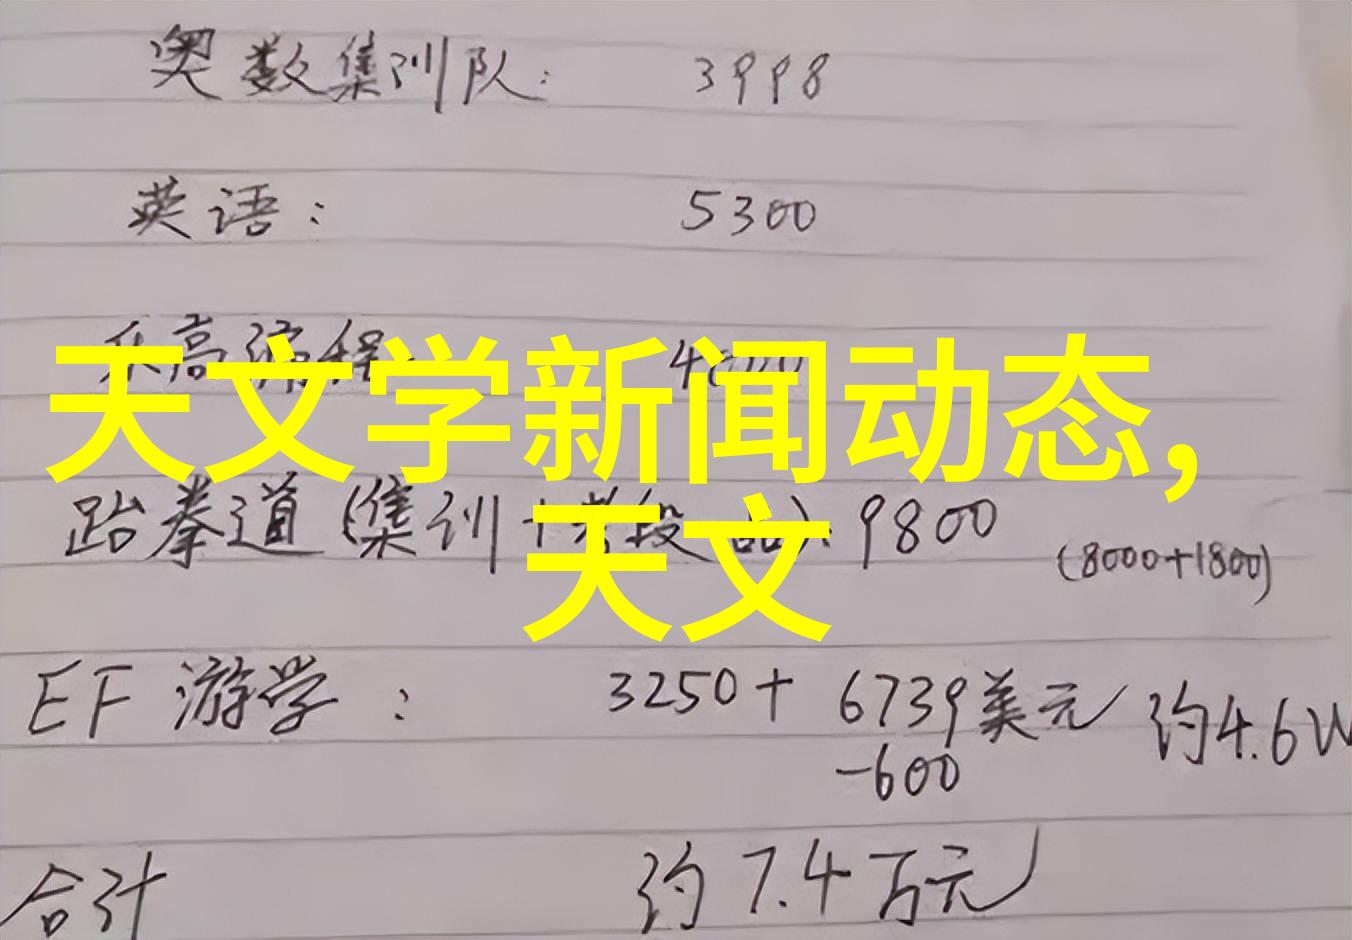 奥数集训队: 3998
英语: 5300
乐高编程:
天文学新闻动态,
跆拳道(集训+考段 品): 9800 (8000+1800)
天文
EF 游学: 3250+ 6739美元 约4.6W
-600
合计 约7.4万元